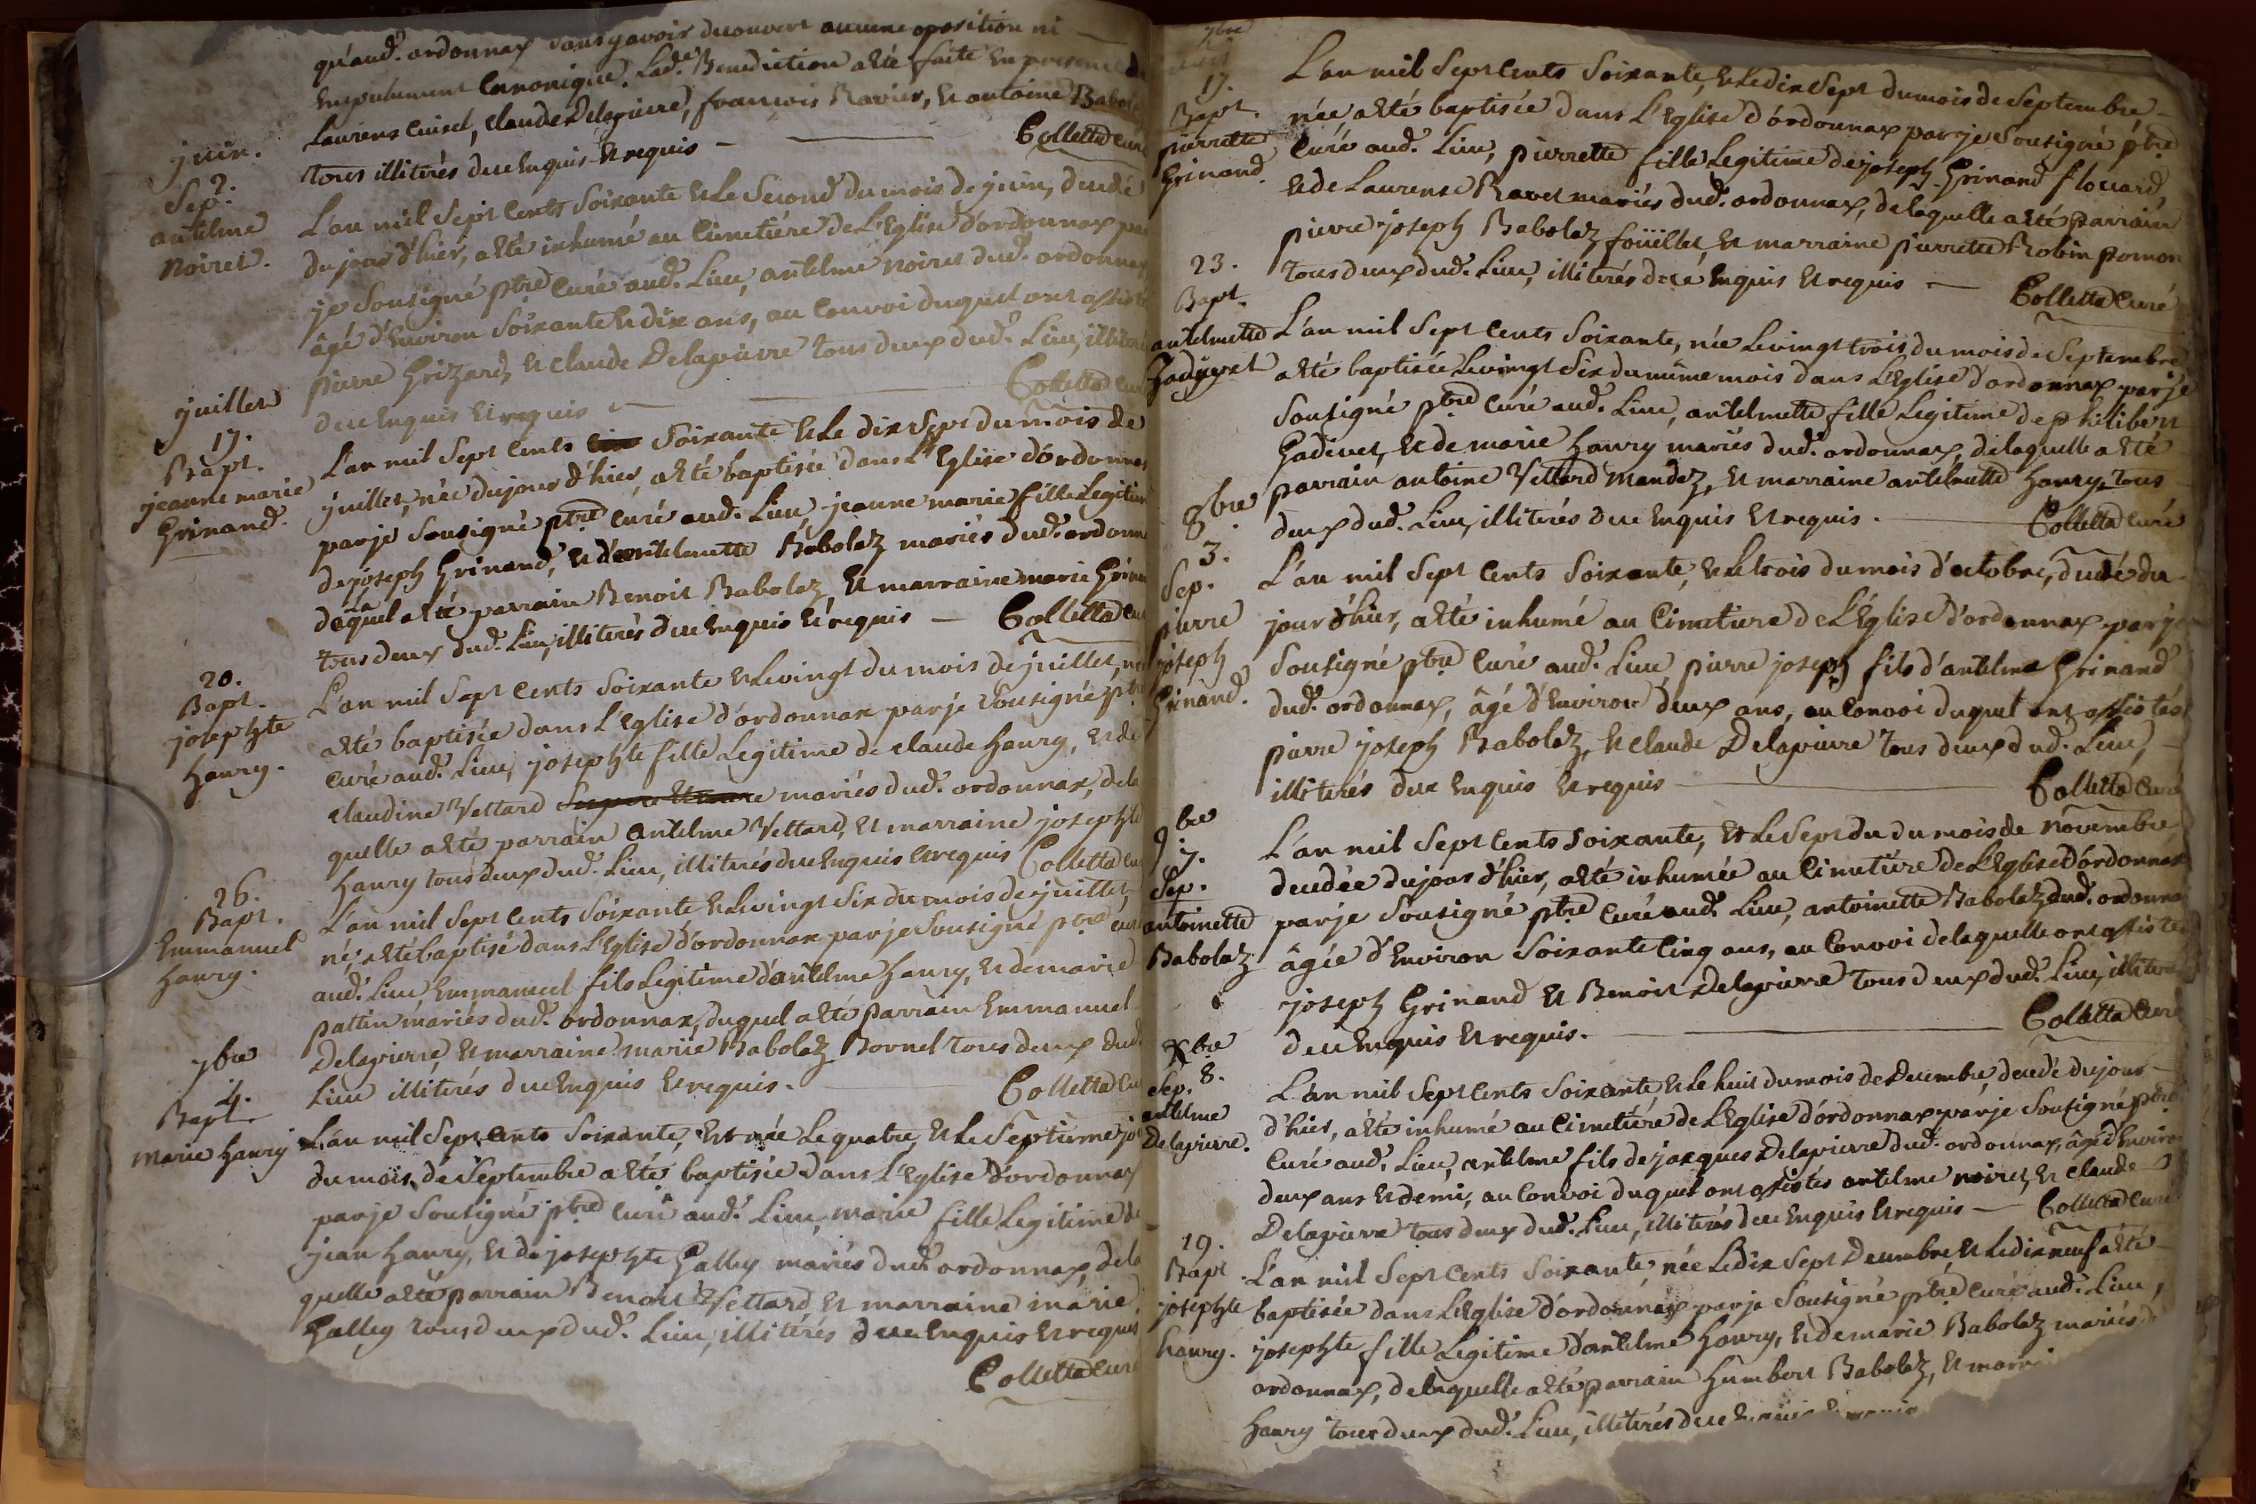 qu'aud.t ordonnax sans y avoir decouvert aucune oposition ni
Empéchement Cannonique. Lad.e Benediction a été faite En presence de
Laurens Cuisel, claude Delapierre, françois Ravier, et antoine Babolaz
tous illiterés de ce Enquis et requis – Colletta Curé
juin.
2.
Sep.
antelme
noiret.
L'an mil sept cents soixante et Le Second du mois de juin, decedé
du jour d'hier, a été inhumé au Cimetiére de L'Eglise d'ordonnax par
je Sousigné ptre Curé aud.t Lieu, antelme noiret dud.t ordonnax
âgé d'Environ Soixante et dix ans, au Convoi duquel ont assisté
pierre Grizard, et claude Delapierre tous deux dud.t Lieu, illiterés
de ce Enquis et requis – Colletta Curé
juillet
17.
Bapt.
jeanne marie
Grinand.
L'an mil Sept Cents Soixante et Le dix Sept du mois de
juillet, née du jour d'hier, a été baptisée dans L'Eglise d'ordonnax
par je Sousigné ptre Curé aud.t Lieu, jeanne marie fille Legitime
de joseph Grinand, et d'antelmette Babolaz mariés dud.t ordonnax
de laquel a été parrain Benoit Babolaz, et marraine marie Grinand
tous deux dud.t Lieu, illiterés de ce Enquis et requis – Colletta Curé
20.
Bapt.
josephte
haury.
L'an mil Sept Cents Soixante et Le vingt du mois de juillet, née
a été baptisée dans L'Eglise d'ordonnax par je Sousigné ptre
Curé aud.t Lieu, josephte fille Legitime de claude haury, et de
claudine Vettard mariés dud.t ordonnax, de la
quelle a été parrain antelme Vettard, et marraine josephte
haury tous deux dud.t Lieu, illiterés de ce Enquis et requis Colletta Curé
26.
Bapt.
Emmanuel
haury.
L'an mil Sept Cents Soixante et Le vingt Six du mois de juillet,
né, a été baptisé dans L'Eglise d'ordonnax par je Sousigné ptre curé
aud.t Lieu, Emmanuel fils Legitime d'antelme haury, et de marie
pattin mariés dud.t ordonnax, duquel a été parrain Emmanuel
Delapierre, et marraine marie Babolaz Bornel tous deux dud.t
Lieu illiterés de ce Enquis et requis. Colletta Curé
7bre
4.
Bapt.
marie haury
L'an mil Sept Cents Soixante, et née Le quatre, et Le Septieme jour
du mois de Septembre a été baptisée dans L'Eglise d'ordonnax
par je Sousigné ptre Curé aud.t Lieu, marie fille Legitime de
jean haury, et de josephte Galley mariés dud.t ordonnax, de la
quelle a été parrain Benoit Vettard et marraine marie
Galley tous deux dud.t Lieu, illiterés de ce Enquis et requis
Colletta Curé
7bre
17.
Bapt.
pierrette
Grinand.
L'an mil Sept Cents Soixante, et Le dix Sept du mois de Septembre –
née a été baptisée dans L'Eglise d'ordonnax par je Sousigné ptre
Curé aud.t Lieu, pierrette fille Legitime de joseph Grinand flouard
et de Laurence Ravet mariés dud.t ordonnax, de laquelle a été parrain
pierre joseph Babolaz foüillet, et marraine pierrette Robin pomon
tous deux dud.t Lieu, illiterés de ce Enquis et requis – Colletta Curé
23.
Bapt.
antelmette
Gadivet
L'an mil Sept Cents Soixante, née Le vingt trois du mois de Septembre
a été baptisée Le vingt Six du même mois dans L'Eglise d'ordonnax par je
Sousigné ptre Curé aud.t Lieu, antelmette fille Legitime de philibert
Gadivet, et de marie haury mariés dud.t ordonnax, de laquelle a été
parrain antoine Vettard mandez, et marraine antelmette haury, tous
deux dud.t Lieu, illiterés de ce Enquis et requis. Colletta Curé
8bre
3.
Sep.
pierre
joseph
Grinand.
L'an mil Sept Cents Soixante, et Le trois du mois d'octobre, decedé du
jour d'hier, a été inhumé au Cimetiere de L'Eglise d'ordonnax par je
Sousigné ptre Curé aud.t Lieu, pierre joseph fils d'antelme Grinand
dud.t ordonnax, âgé d'Environ deux ans, au Convoi duquel ont assistés
pierre joseph Babolaz, et claude Delapierre tous deux dud.t Lieu, –
illiterés de ce Enquis et requis – Colletta Curé
9bre
7.
Sep.
antoinette
Babolaz
L'an mil Sept Cents Soixante, et Le Sept du du mois de novembre
decedée du jour d'hier, a été inhumée au Cimetiére de L'Eglise d'ordonnax
par je Sousigné ptre Curé aud.t Lieu, antoinette Babolaz dud.t ordonnax
âgée d'Environ Soixante Cinq ans, au Convoi de laquelle ont assistés
joseph Grinand et Benoit Delapierre tous deux dud.t Lieu, illiterés
de ce Enquis et requis. – Colletta Curé
Xbre
8.
Sep.
antelme
Delapierre.
L'an mil Sept Cents Soixante, et Le huit du mois de Decembre, decedé du jour –
d'hier, a été inhumé au Cimetiére de L'Eglise d'ordonnax par je Sousigné ptre
Curé aud.t Lieu, antelme fils de jacques Delapierre dud.t ordonnax, âgé d'Environ
deux ans et demi, au Convoi duquel ont assistés antelme noiret, et claude
Delapierre tous deux dud.t Lieu, illiterés de ce Enquis et requis – Colletta Curé
19.
Bapt.
josephte
haury.
L'an mil Sept Cents Soixante, née Le dix Sept Decembre et Le dix neuf a été –
baptisée dans L'Eglise d'ordonnax par je Sousigné ptre Curé aud.t Lieu,
josephte fille Legitime d'antelme haury, et de marie Babolaz mariés
ordonnax, de laquelle a été parrain humbert Babolaz, et marrai
haury tous deux dud.t Lieu, illiterés de ce Enquis et requis